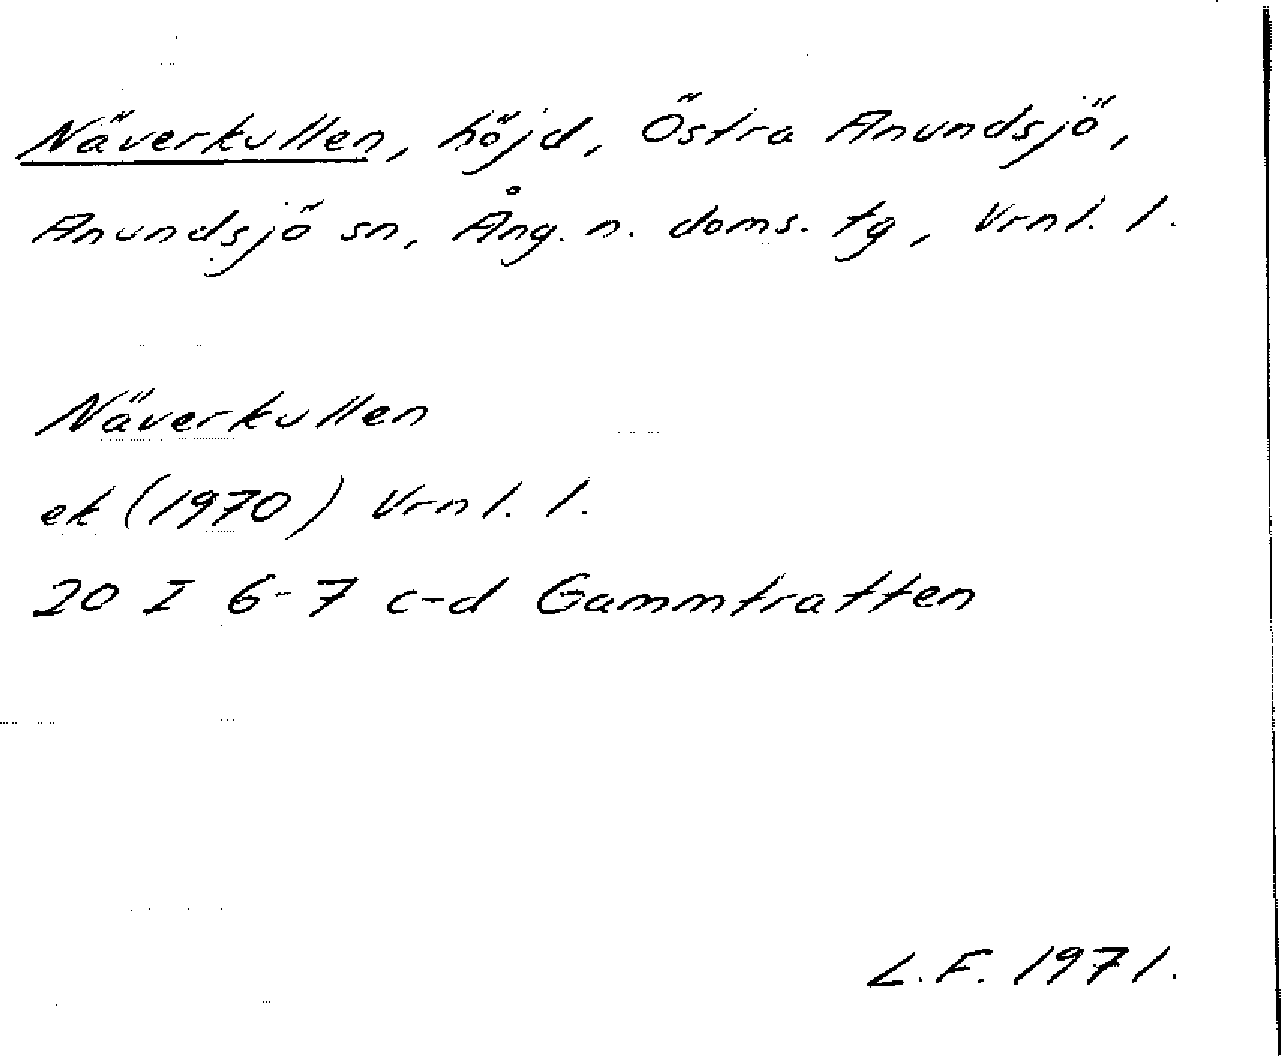 Näverkullen, höjd, Östra Anundsjö,
Anundsjö sn, Ång. n. doms. tg, Vrnl. l.
Näverkullen
ek (1970) Vrnl. l.
20 I 6-7 c-d Gammtratten
L.F. 1971.